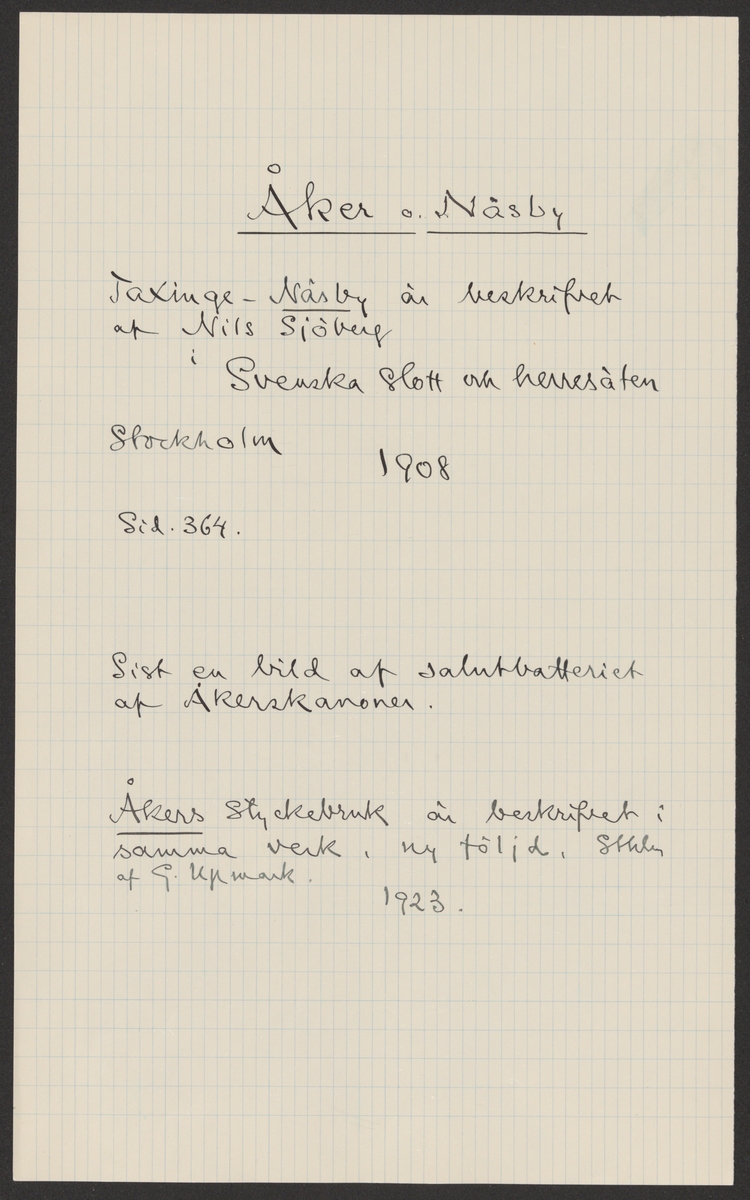 Åker o. Näsby
Taxinge-Näsby är beskrifvet
af Nils Sjöberg
i
Svenska Slott och herresäten
Stockholm
1908
Sid. 364.
Sist en bild af salutbatteriet
af Åkerskanoner.
Åkers Styckebruk är beskrifvet i
samma verk, ny följd, Sthlm
af G. Upmark.
1923.